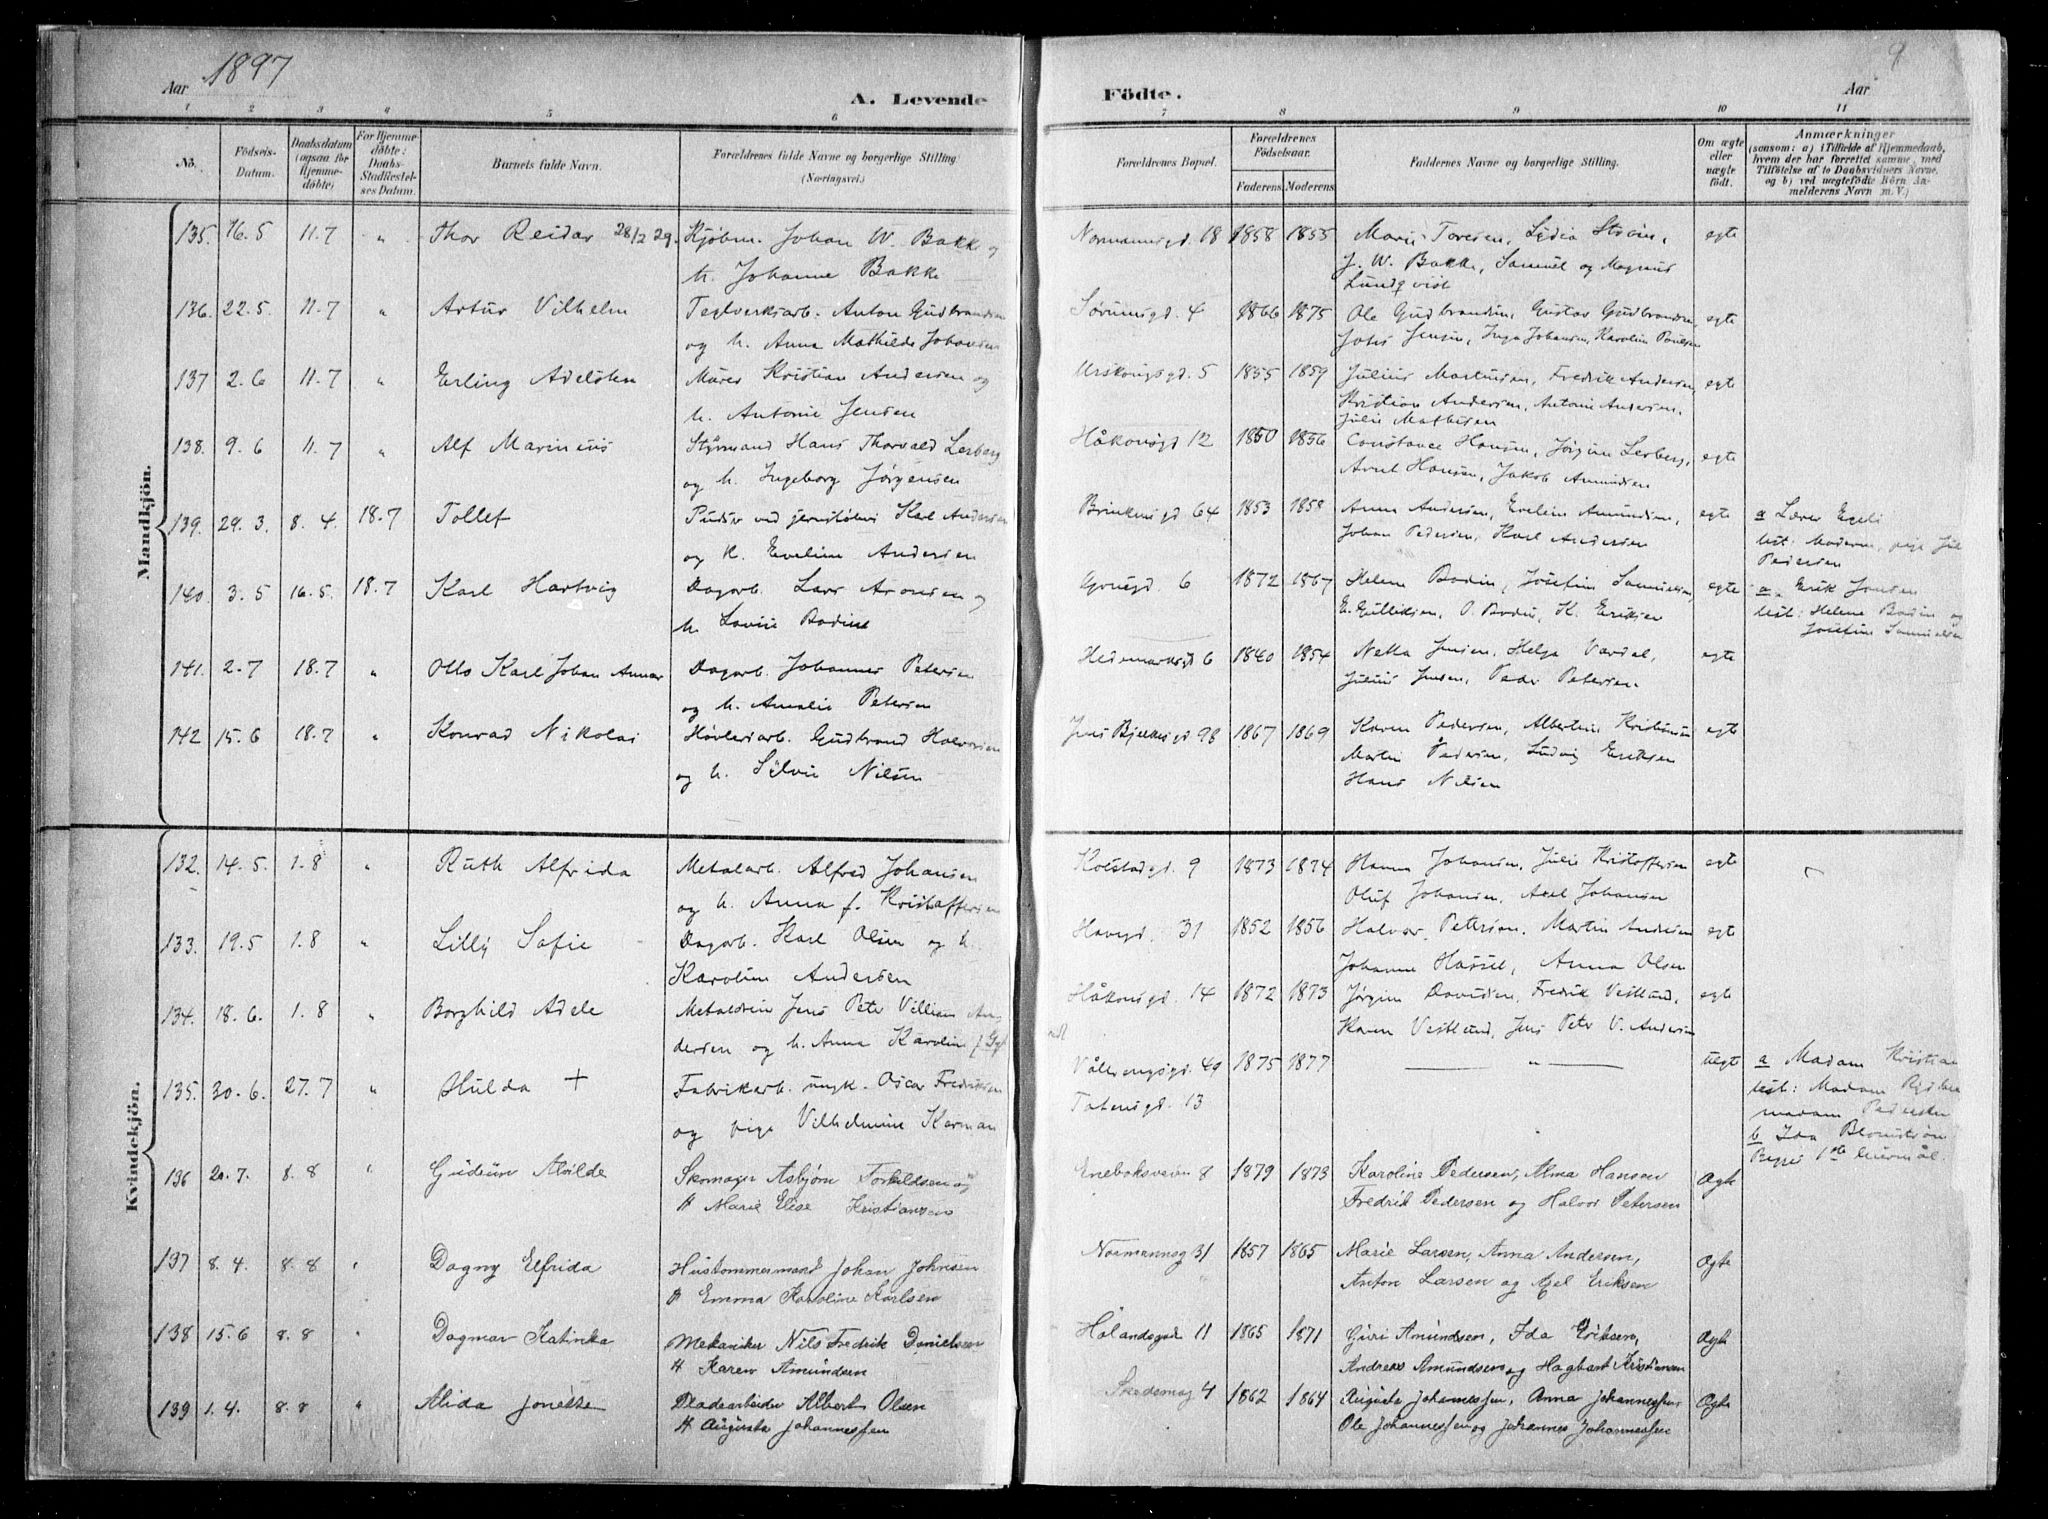 Aar 1897
A. Levende
Födte.
Aar
9
1 2 3 4 5 6 7 8 9 10 11
No.
Födsels-
Datum.
Daabsdatum
(ogsaa for
Hjemme-
döbte)
For Hjemme-
döbte:
Daabs-
Stadfæstel-
ses Datum.
Barnets fulde Navn.
Forældrenes fulde Navne og borgerlige Stilling
(Næringsvei.)
Forældrenes Bopæl.
Forældrenes
Födselsaar.
Faderens Moderens
Faddernes Navne og borgerlige Stilling.
Om ægte
eller
uægte
födt.
Anmærkninger
(saasom: a) i Tilfælde af Hjemmedaab,
hvem der har forrettet samme, med
Tilföielse af to Daabsvidners Navne,
og b) ved uægtefödte Börn An-
melderens Navn m. V.)
Mandkjön.
135. 16.5 11.7 " Thor Reidar 28/2 29. Kjøbm. Johan W. Bakke og Normannsgd. 18 1858 1855 Marie Toresen, Lydia Strøm, egte
h. Johanne Bakke J. W. Bakke, Samuel og Magnus
Lundqvist
136. 22.5 11.7 " Artur Vilhelm Teglverksarb. Anton Gudbrandsen Sørumsgd. 4 1866 1875 Ole Gudbrandsen, Gustav Gudbrandsen, egte
og h. Anna Mathilde Johansen Jensen, Inga Johansen, Karoline Paulsen
137 2.6 11.7 " Erling Adelsten Murer Kristian Andersen og Urskougsgd. 5 1855 1859 Julius Martinsen, Fredrik Andersen, egte
h. Antonie Jensen Kristian Andersen, Antonie Andersen,
Julie Mathesen
138. 9.6 11.7 " Alf Marinius Styrmand Hans Thorvald Lerberg Håkonsgd 12 1850 1856 Constance Hansen, Jørgine Lerberg, egte
og h. Ingeborg Jørgensen Arnt Hansen, Jakob Amundsen
139. 29.3. 8.4. 18.7 Tollef Pudser ved jernstøberi Karl Andersen Brinkensgd 64 1853 1858 Anna Andersen, Eveline Amundsen, egte a Lærer Egeli
og h. Eveline Andersen Johan Pedersen, Karl Andersen test: Moderen, pige Jul
Pedersen
140. 3.5 16.5. 18.7 Karl Hartvig Dagarb. Lars Aronsen og 6 1872 1867 Helene Bodin, Josefine Samuelsen, egte a. Erik Jonsen
h. Lovise Bodin E. Gulliksen, O. Bodin, K. Eriksen test: Helene Bodin og
Josefine Samuelsen
141. 2.7 18.7 " Otto Karl Johan Annar Dagarb. Johannes Petersen Hedemarksgd 6 1840 1854 Netta Jensen, Helga Vardal, egte
og h. Amalie Petersen Julius Jensen, Peder Petersen
142 15.6 18.7 " Konrad Nikolai Høvleriarb. Gudbrand Halvorsen Jens Bjelkesgd 98 1867 1869 Karen Pedersen, Albertine Kristiansen egte
og h. Sylvie Nilsen Martin Pedersen, Ludvig Eriksen
Hans Nilsen
Kvindekjön.
132. 14.5. 1.8 " Ruth Alfrida Metalarb. Alfred Johansen Kolstadgd. 9 1873 1874 Hanna Johansen, Julie Kristoffersen egte
og h. Anna f. Kristoffersen Oluf Johansen, Axel Johansen
133. 19.5 1.8 " Lilly Sofie Dagarb. Karl Olsen og h. Havegd. 31 1852 1856 Halvor Pettersen, Martin Andersen egte
Karoline Andersen Johanne Hassel, Anna Olsen
134. 18.6. 1.8 " Borghild Adele Jens Peter Villiam An- Håkonsgd. 14 1872 1873 Jørgine Davidsen, Fredrik Vestlund, egte
dersen og h. Anna Karoline f. Karen Vestlund, Jens Peter V. Andersen
135. 30.6. 27.7 " Hulda + Fabrikarb. ungk. Oscar Fredriksen Vålerengsgd. 49 1875 1877 — " — uegte a Madam Kristian
og pige Vilhelmine Karman Totensgd. 13 test: Madam
madam Pedersen
b Ida Blomstrøm
136 20.7. 8.8 " Gudrun Alvilde Skomager Asbjørn Torkildsen og Eneboksveien 8 1879 1873 Karoline Pedersen, Alma Hansen Ægte
H Marie Elise Kristiansen Fredrik Pedersen og Halvor Petersen
137 8.4. 8.8 " Dagny Elfrida Hustømmermand Johan Johnsen Normannsg 31 1857 1865 Marie Larsen, Anna Andersen, Ægte
H Emma Karoline Karlsen Anton Larsen og Axel Eriksen
138 15.6 8.8 " Dagmar Katinka Mekaniker Nils Fredrik Danielsen Hølandsgd 11 1865 1871 Guri Amundsen, Ida Eriksen, Ægte
H Karen Amundsen Andreas Amundsen og Hagbart Kristiansen
139 1.4. 8.8 " Alida Jonette Pladearbeider Albert Olsen 4 1862 1864 Augusta Johannessen, Anna Johannessen Ægte
H Augusta Johannessen Ole Johannessen og Johannes Johannessen